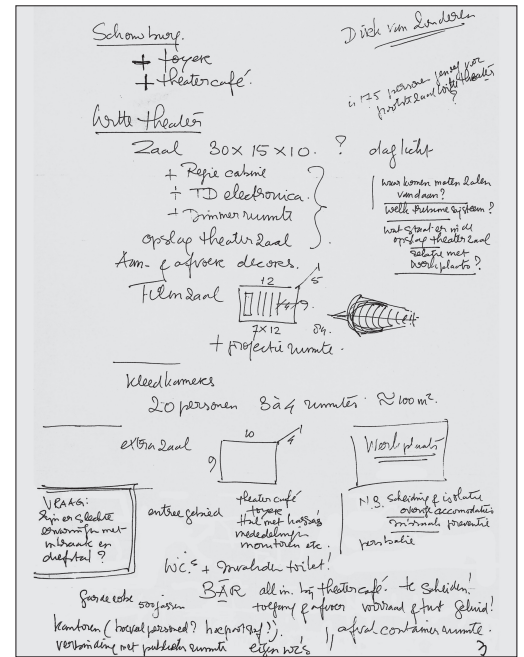 Schouwburg.
Dirk van Sonderen
+ foyer
+ theatercafé.
is 175 personen genoeg voor
grote zaal Witte theater
?
Witte theater
Zaal 30 x 15 x 10. ? daglicht
+ Regie cabine
+ TD electronica.
+ Dimmerruimte
opslag theaterzaal
waar komen maten zalen
vandaan?
welk tribune systeem?
wat staat er in de
opslag theaterzaal
relatie met
werkplaats?
Aan- & afvoer decors.
Filmzaal
12
5
9.
7x12
84.
+ projectie ruimte.
kleedkamers
20 personen 3 à 4 ruimtes ≈ 100 m².
extra zaal
10
4
9
Werkplaats
VRAAG:
Zijn er slechte
ervaringen met
inbraak en
diefstal?
entree gebied
theater café
foyer
Hal met kassa's
mededelingen
monitoren etc.
N.B. Scheiding & isolatie
overige accomodaties
minimale preventie
W.C.s + Invaliden toilet!
BAR all in. bij theatercafé. te scheiden!
garderobe
toegang & afvoer voorraad & fust geluid!
kantoren (hoeveel personen? hoe groot
afval container ruimte.
verbinding met publieksruimte eigen wc's